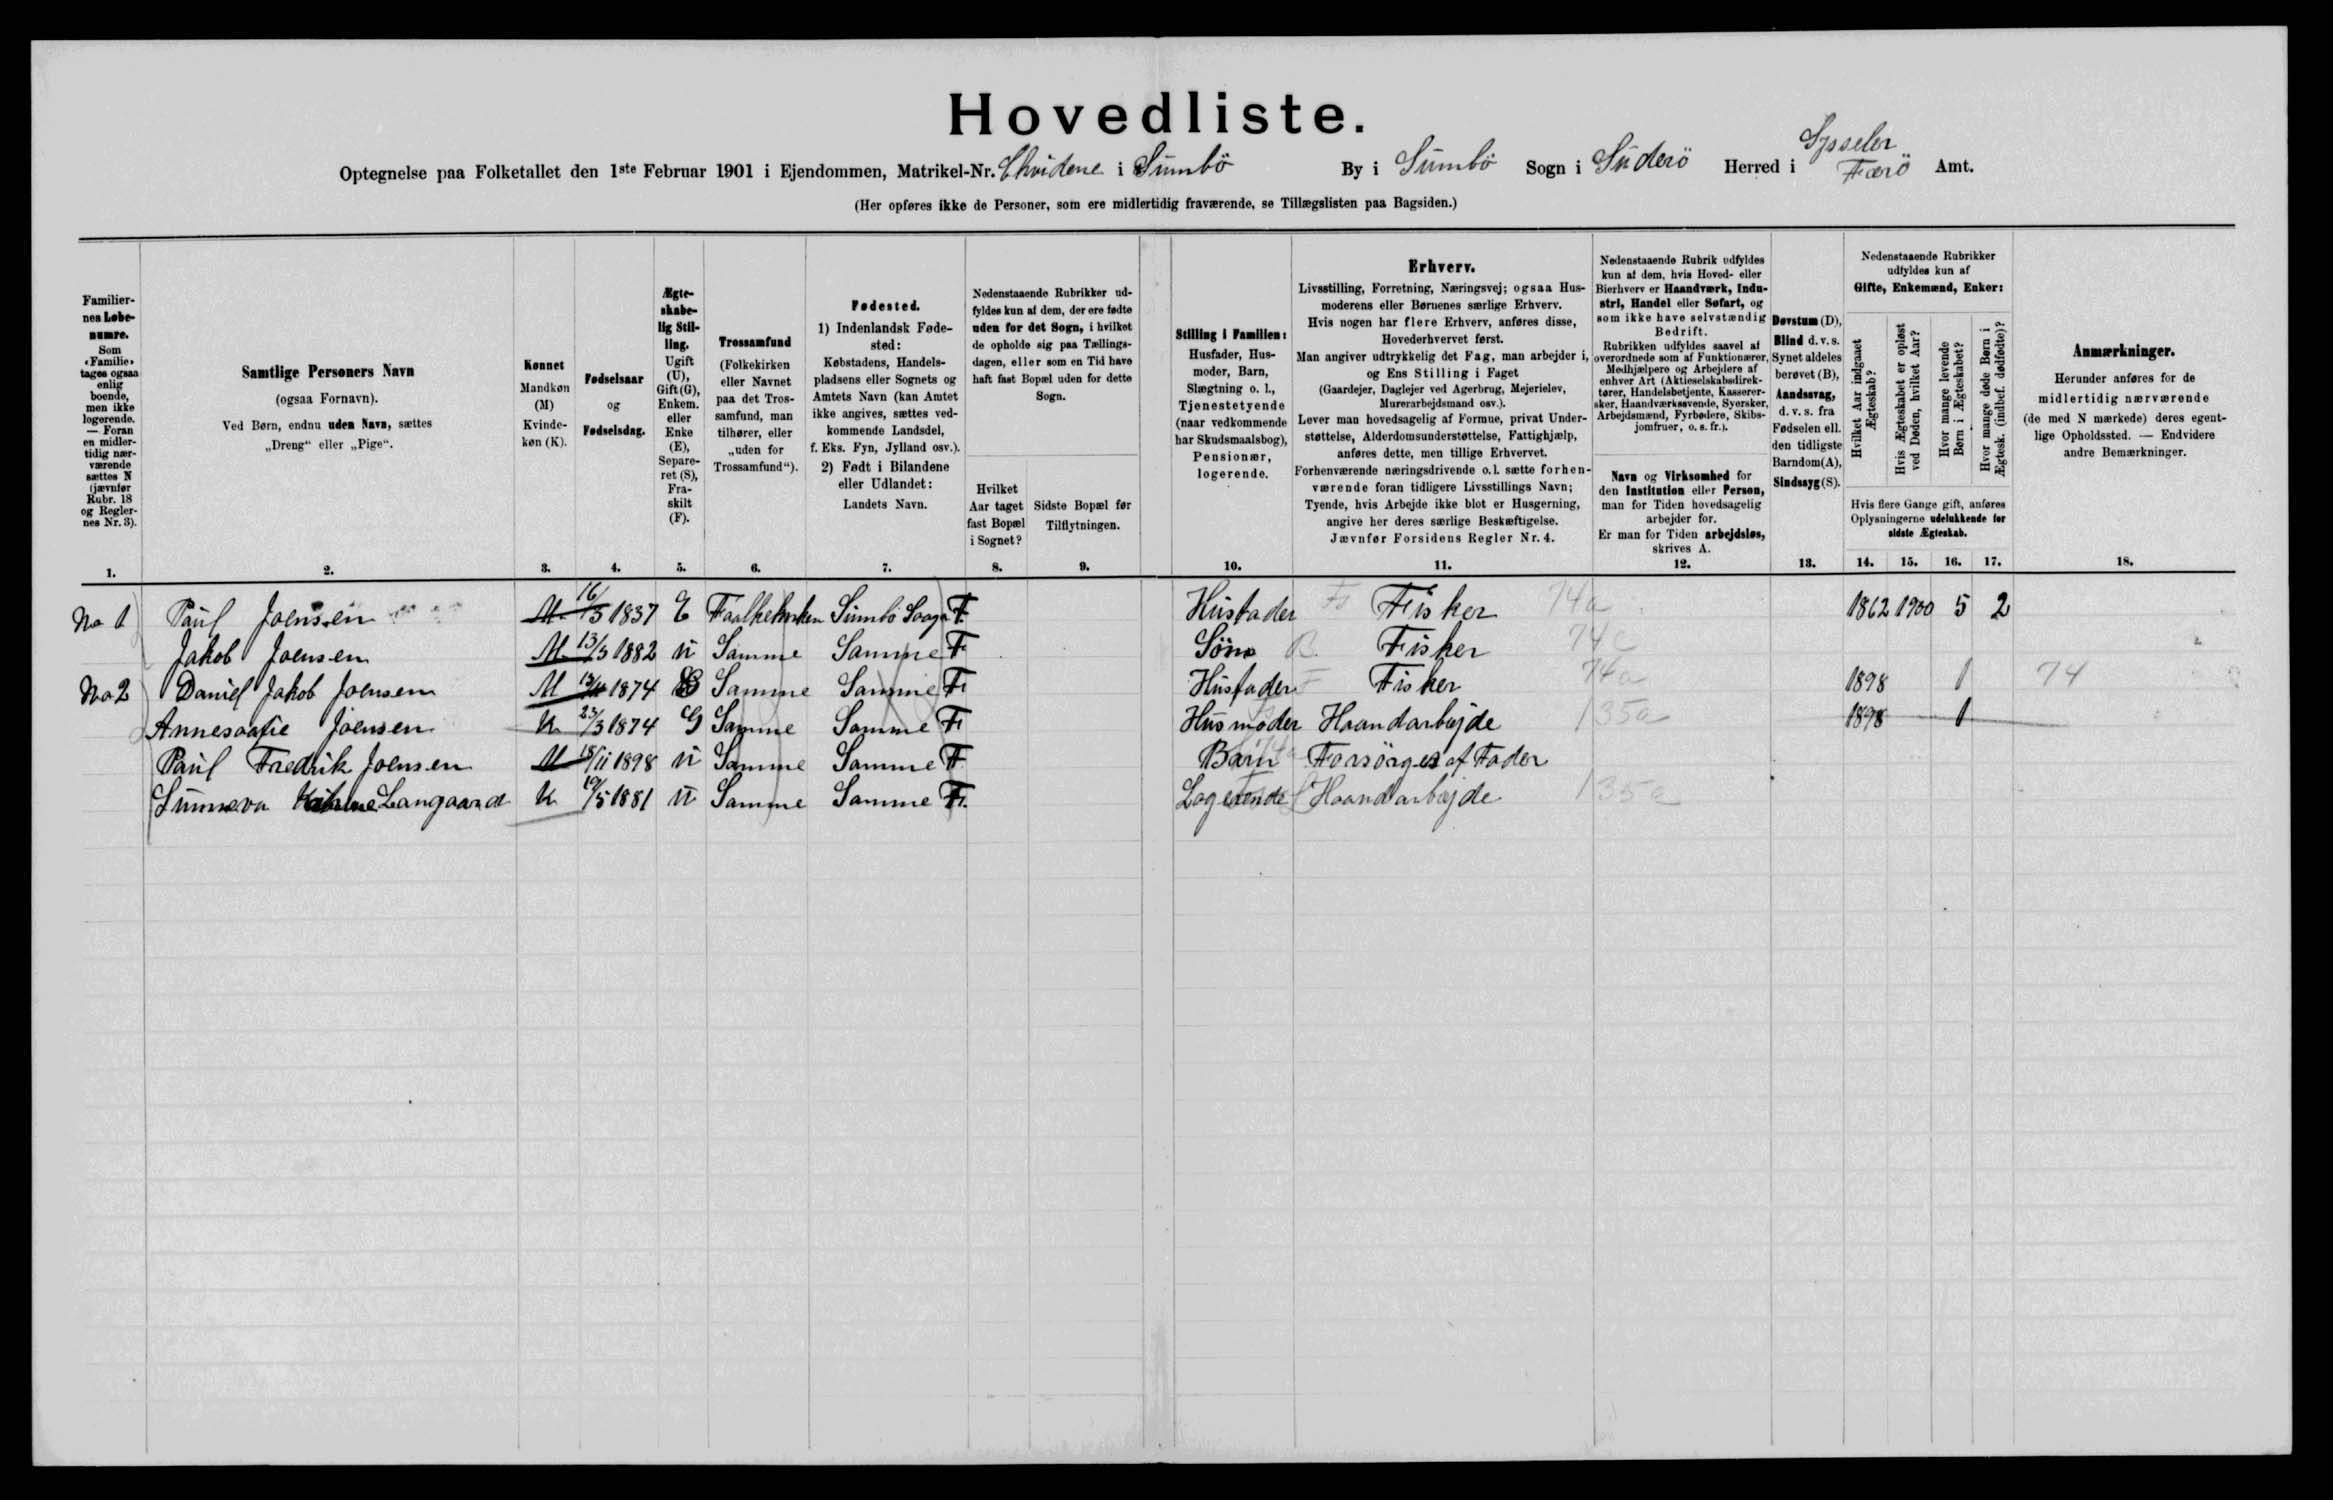 Hovedliste.
Optegnelse paa Folketallet den 1ste Februar 1901 i Ejendommen, Matrikel-Nr. i Sumbö By i Sumbö Sogn i Süderö Herred i Sysseler Færö Amt.
(Her opføres ikke de Personer, som ere midlertidig fraværende, se Tillægslisten paa Bagsiden.)
Familiernes Løbenumre.
Som «Familie» tages ogsaa enlig boende, men ikke logerende. — Foran en midlertidig nærværende sættes N (jævnfør Rubr. 18 og Reglernes Nr. 3).
1.
Samtlige Personers Navn
(ogsaa Fornavn).
Ved Børn, endnu uden Navn, sættes
„Dreng“ eller „Pige“.
2.
Kønnet
Mandkøn (M)
Kvindekøn (K).
3.
Fødselsaar
og
Fødselsdag.
4.
Ægteskabelig Stilling.
Ugift (U), Gift (G), Enkem. eller Enke (E), Separeret (S), Fraskilt (F).
5.
Trossamfund
(Folkekirken eller Navnet paa det Trossamfund, man tilhører, eller „uden for Trossamfund“).
6.
Fødested.
1) Indenlandsk Fødested:
Købstadens, Handelspladsens eller Sognets og Amtets Navn (kan Amtet ikke angives, sættes vedkommende Landsdel, f. Eks. Fyn, Jylland osv.).
2) Født i Bilandene eller Udlandet:
Landets Navn.
7.
Nedenstaaende Rubrikker udfyldes kun af dem, der ere fødte uden for det Sogn, i hvilket de opholde sig paa Tællingsdagen, eller som en Tid have haft fast Bopæl uden for dette Sogn.
Hvilket Aar taget fast Bopæl i Sognet?
8.
Sidste Bopæl før Tilflytningen.
9.
Stilling i Familien:
Husfader, Husmoder, Barn, Slægtning o. l., Tjenestetyende (naar vedkommende har Skudsmaalsbog), Pensionær, logerende.
10.
Erhverv.
Livsstilling, Forretning, Næringsvej; ogsaa Husmoderens eller Børnenes særlige Erhverv.
Hvis nogen har flere Erhverv, anføres disse, Hovederhvervet først.
Man angiver udtrykkelig det Fag, man arbejder i, og Ens Stilling i Faget
(Gaardejer, Daglejer ved Agerbrug, Mejerielev, Murerarbejdsmand osv.).
Lever man hovedsagelig af Formue, privat Understøttelse, Alderdomsunderstøttelse, Fattighjælp, anføres dette, men tillige Erhvervet.
Forhenværende næringsdrivende o. l. sætte forhenværende foran tidligere Livsstillings Navn;
Tyende, hvis Arbejde ikke blot er Husgerning, angive her deres særlige Beskæftigelse.
Jævnfør Forsidens Regler Nr. 4.
11.
Nedenstaaende Rubrik udfyldes kun af dem, hvis Hoved- eller Bierhverv er Haandværk, Industri, Handel eller Søfart, og som ikke have selvstændig Bedrift.
Rubrikken udfyldes saavel af overordnede som af Funktionærer, Medhjælpere og Arbejdere af enhver Art (Aktieselskabsdirektører, Handelsbetjente, Kasserersker, Haandværkssvende, Syersker, Arbejdsmænd, Fyrbødere, Skibsjomfruer, o. s. fr.).
Navn og Virksomhed for den Institution eller Person, man for Tiden hovedsagelig arbejder for.
Er man for Tiden arbejdsløs, skrives A.
12.
Døvstum (D), Blind d. v. s. Synet aldeles berøvet (B), Aandssvag, d. v. s. fra Fødselen ell. den tidligste Barndom (A), Sindssyg (S).
13.
Nedenstaaende Rubrikker udfyldes kun af
Gifte, Enkemænd, Enker:
Hvilket Aar indgaaet Ægteskab?
Hvis Ægteskabet er opløst ved Døden, hvilket Aar?
Hvor mange levende Børn i Ægteskabet?
Hvor mange døde Børn i Ægtesk. (indbef. dødfødte)?
Hvis flere Gange gift, anføres Oplysningerne udelukkende for sidste Ægteskab.
14. 15. 16. 17.
Anmærkninger.
Herunder anføres for de midlertidig nærværende (de med N mærkede) deres egentlige Opholdssted. — Endvidere andre Bemærkninger.
18.
No 1 Paul Joensen M 16/5 1837 E Faalkekirken Sumbö Saagn F Husfader Fisker 74a 1862 1900 5 2
Jakob Joensen M 13/5 1882 U Samme Samme F Sön B Fisker 74c
No 2 Daniel Jakob Joensen M 1874 Samme Samme F Husfader F Fisker 74a 1898 1 74
Annesoafie Joensen K 23/3 1874 G Samme Samme F Husmoder Haandarbejde 135a 1898 1
Paul Fredrik Joensen M 18/11 1898 U Samme Samme F Barn Forsörges af Fader
Sunneva Langaard K 19/5 1881 U Samme Samme F. Logerende Haandarbejde 135a